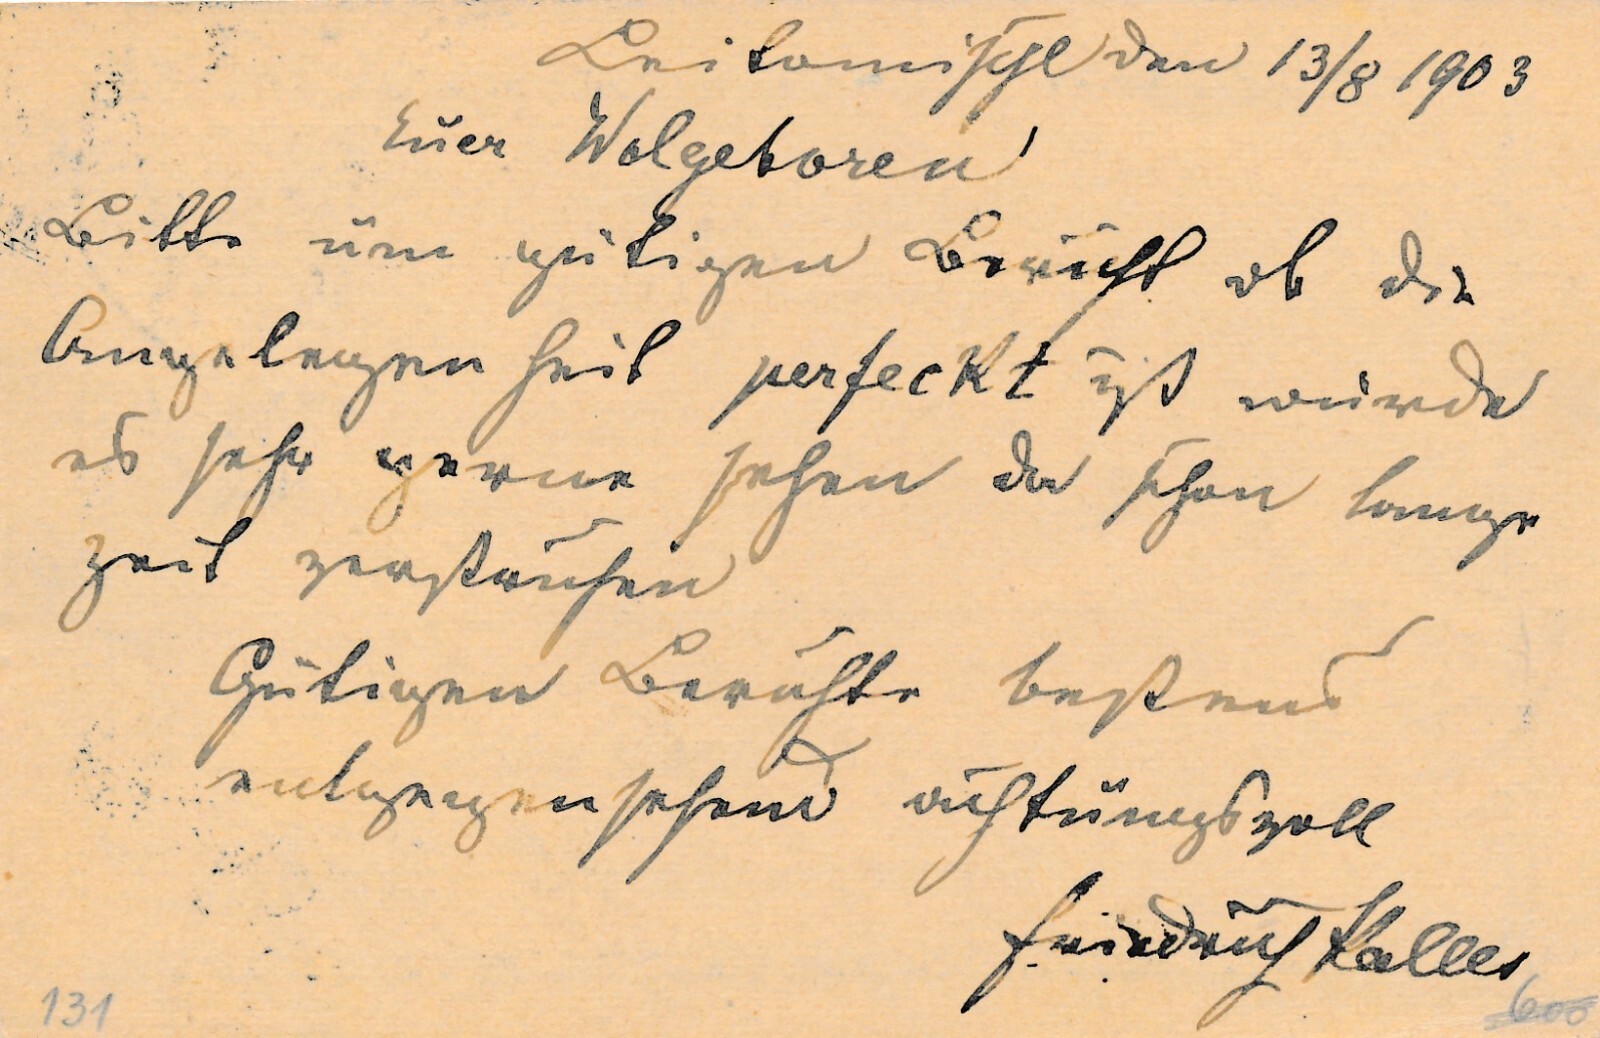 Leitomischl den 13/8 1903
Euer Wolgeboren
Bitte um gütigen Bericht ob die
Angelegenheit perfeckt ist würde
es sehr gerne sehen da schon lange
Zeit verstrichen
Gütigen Berichte bestens
entgegensehend achtungsvoll
Friedrich
131
600